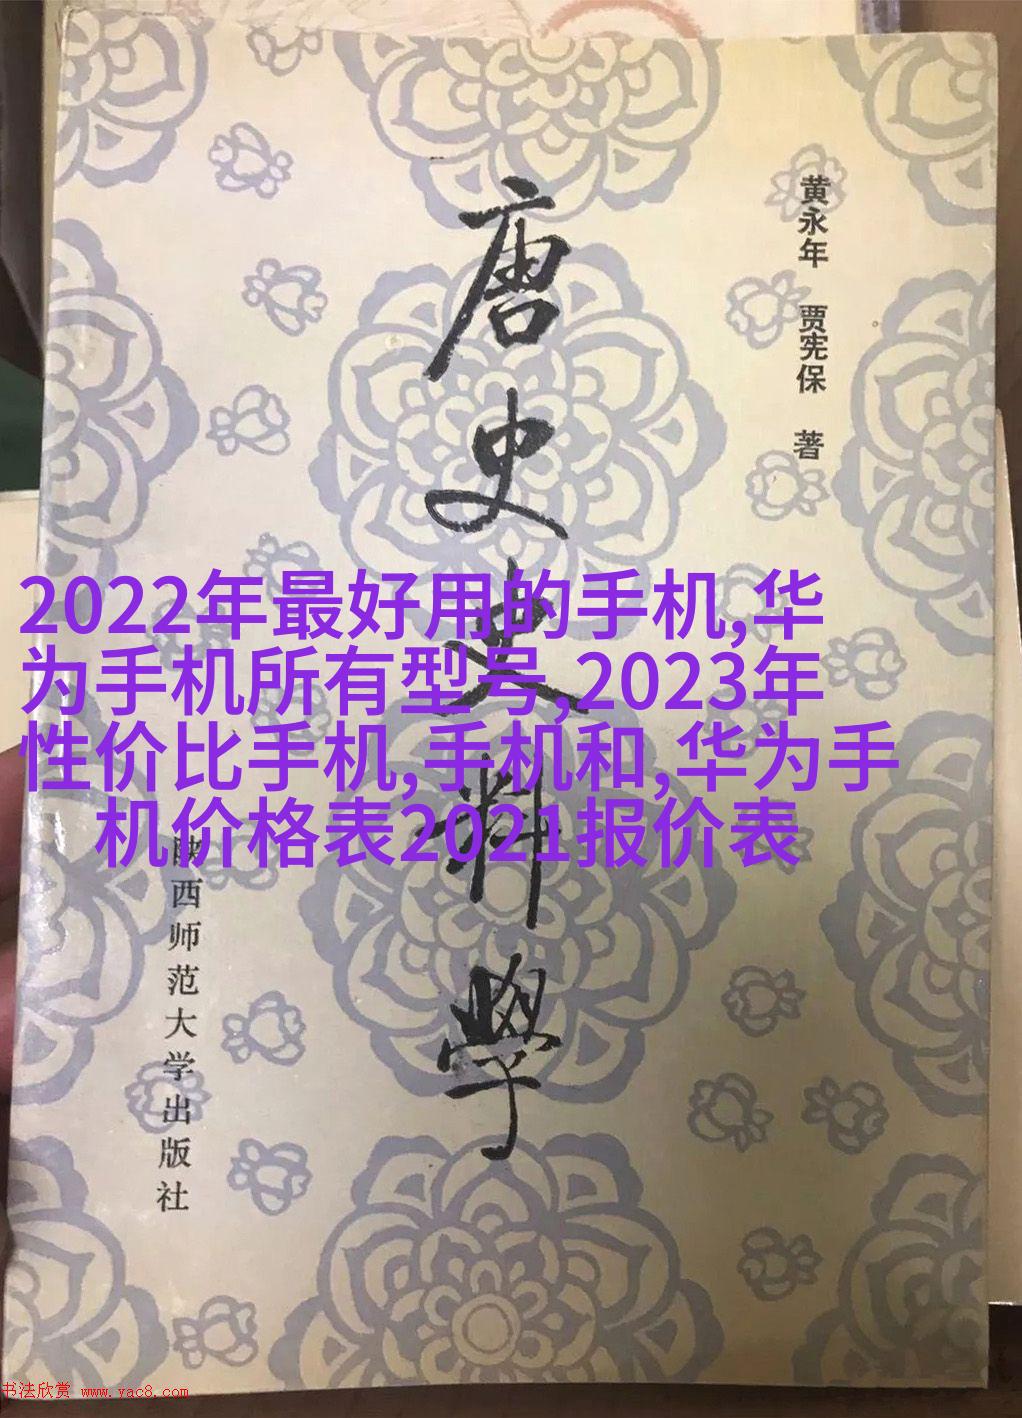 黄永年 贾宪保 著
唐史史料学
2022年最好用的手机,华
为手机所有型号,2023年
性价比手机,手机和,华为手
机价格表2021报价表
陕西师范大学出版社
书法欣赏 www.yac8.com